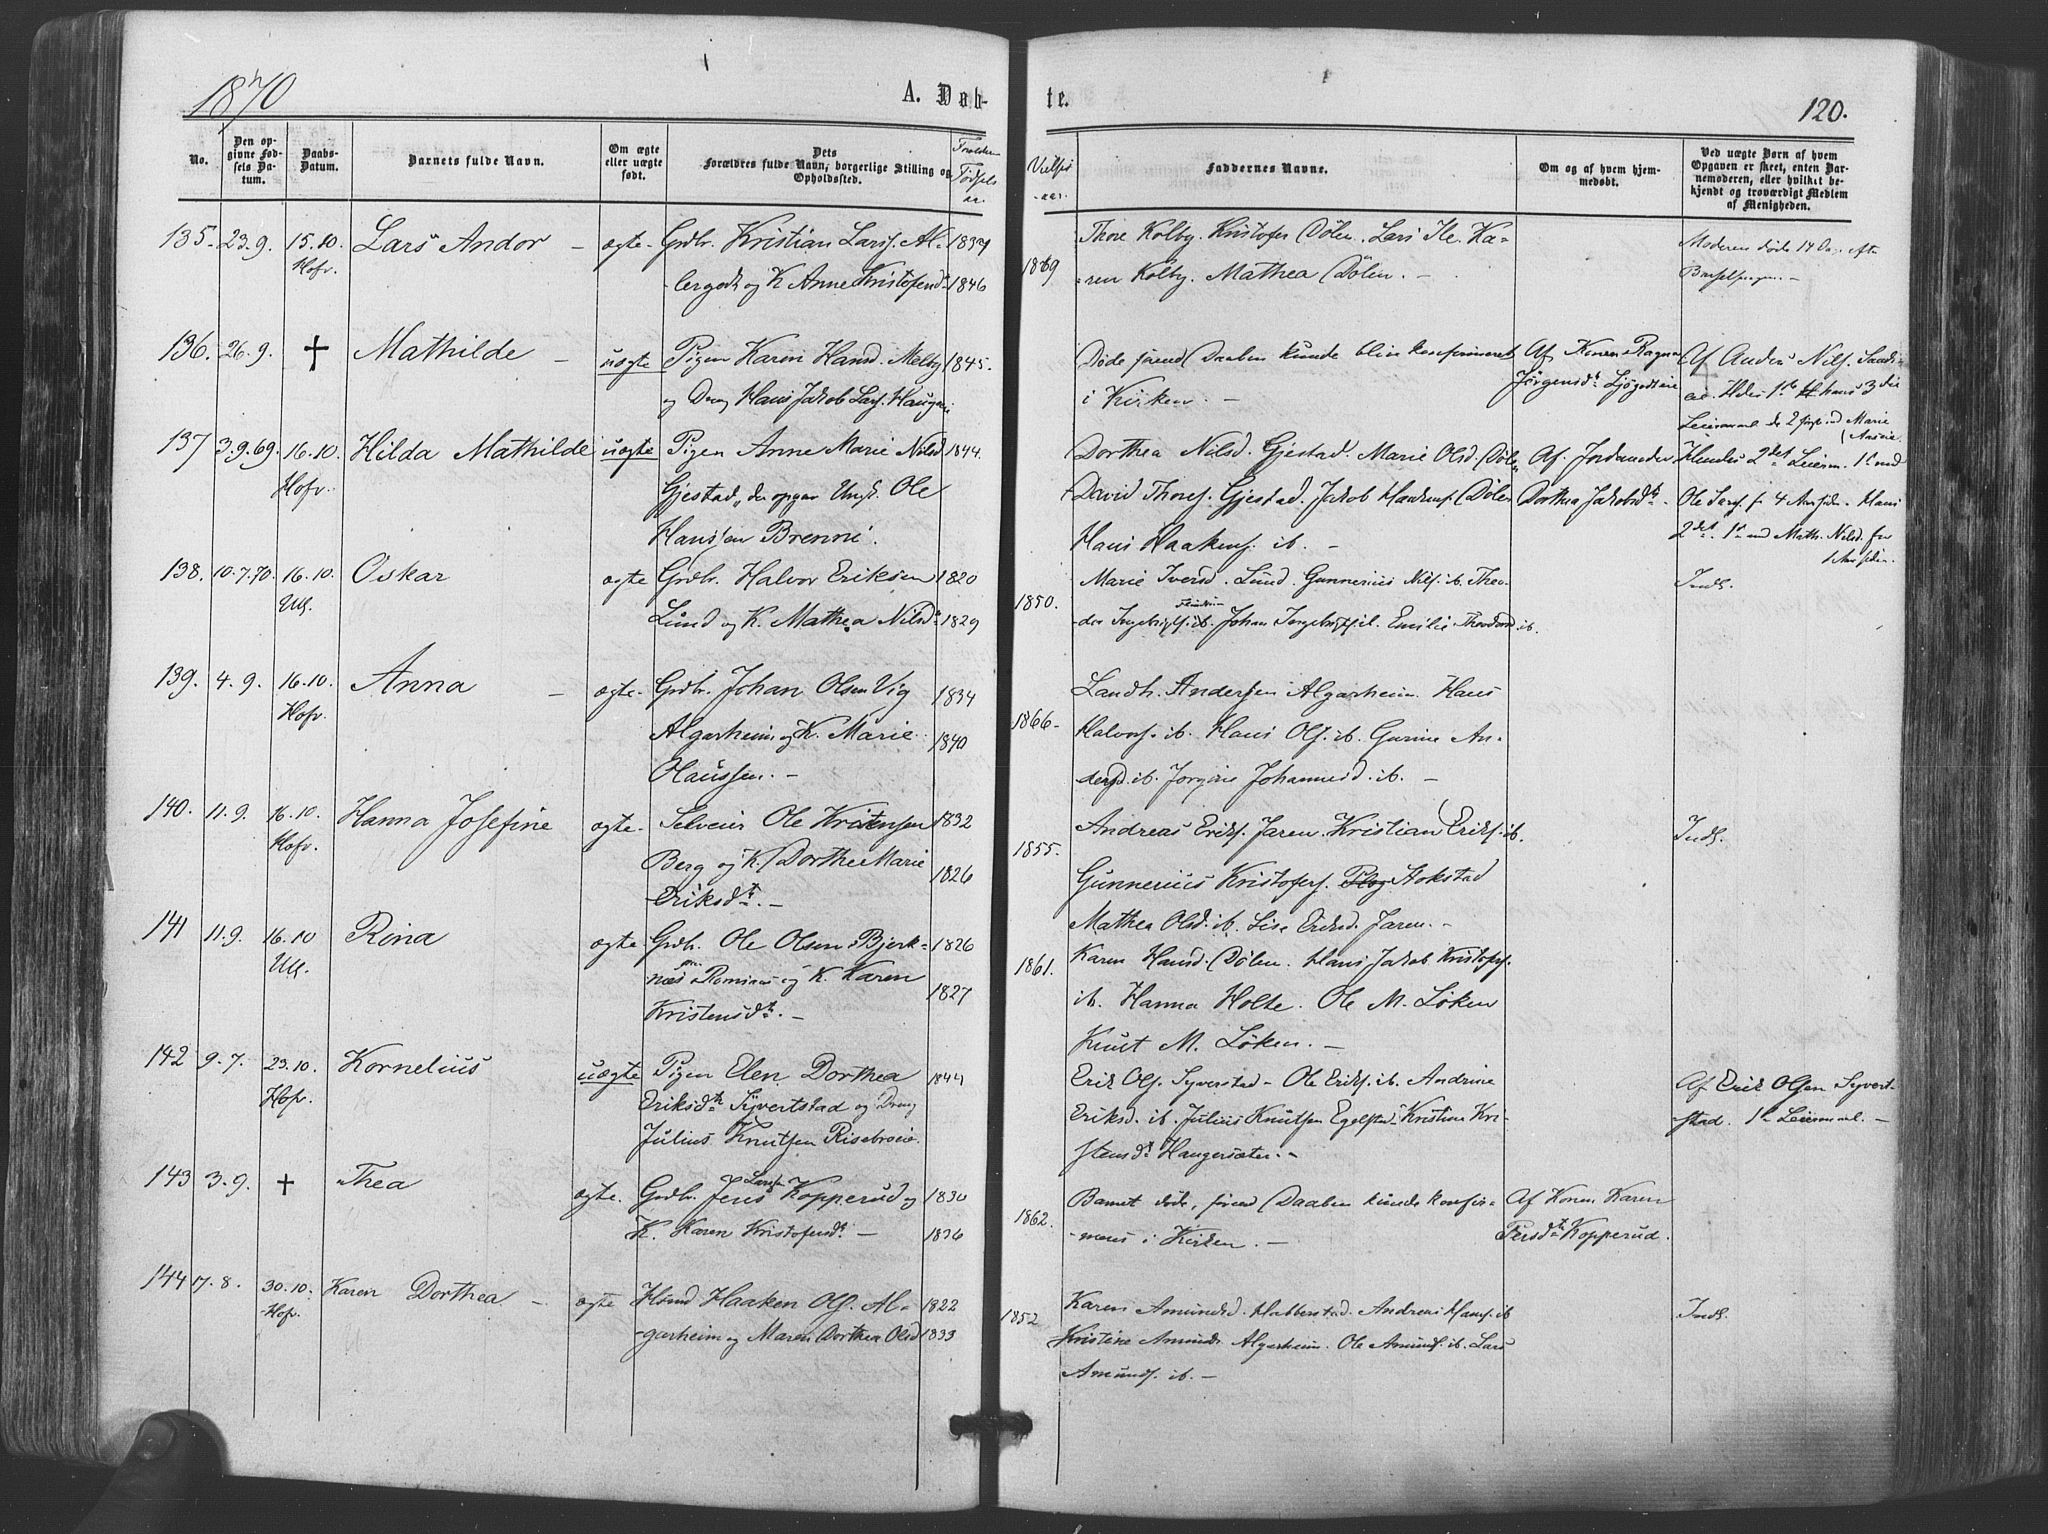 1870
A. Døb-
te.
120.
No.
Den op-
givne Fød-
sels Da-
tum.
Daabs-
Datum.
Barnets fulde Navn.
Om ægte
eller uægte
født.
Dets
Forældres fulde Navn, borgerlige Stilling og
Opholdssted.
Fødsels
aar.
Vielses
-aar.
Faddernes Navne.
Om og af hvem hjem-
medøbt.
Ved uægte Børn af hvem
Opgaven er skeet, enten Bar-
nemoderen, eller hvilket be-
kjendt og troværdigt Medlem
af Menigheden.
135. 23.9. 15.10. Hofv. Lars Andor - ægte. Grdbr. Kristian Larss. Al-
lergodt og K Anne Kristofersd 1846
1869
Thore Kolby. Kristofer Dølen. Lars Ile. Ka-
ren Kolby. Mathea Dølen. -
Moderen døde 14 Da. efter
136. 26.9. † Mathilde - uægte Pigen Karen Hansd. Melby 1845.
og Hans Jakob Larss. Haugen
Døde førend Daaben kunde blive konfirmeret
i Kirken. -
Af Konen Ragna
Jørgensdtr
Af Anders Nils.
137 3.9.69. 16.10. Hofv. Hilda Mathilde uægte Pigen Anne Marie Nilsd 1844.
Gjestad, der opgav Ungk. Ole
Hanssen Brenni.
Dorthea Nilsd. Gjestad. Marie Olsd. Dølen
David Thores. Gjestad. Jakob Haakens. Dølen
Hans Haakens. ib. -
Af Jordmoder
Dorthea Jakobsdtr -
Hendes 2det Leierm. 1st med
Ole Larss. f 4 Aar siden. Hans
2det. 1st med Math. Nilsd. for
1 Aar siden.
138. 10.7.70. 16.10. Ull. Oskar ægte Grdbr. Halvor Eriksen 1820
Lund og K. Mathea Nilsd. 1829
1850.
Marie Iversd. Lund. Gunnerius Nils. ib. Theo-
dor Ingebrigts. ib. Johan Ingebrigts. ib. Emilie Theodorsd ib.
Indl.
139. 4.9. 16.10. Hofv. Anna - ægte. Grdbr. Johan Olsen Vig 1834
Algarheim og K. Marie 1840
Olaussen. -
1866-
Landh. Andersen Algarheim. Hans
Halvors. ib. Hans Ols. ib. Gurine An-
dersd. ib. Jørgine Johannesd. ib. -
140. 11.9. 16.10. Hofv. Hanna Josefine ægte. Selveier Ole Kristensen 1832
Berg og K. Dorthe Marie 1826
Eriksdtr. -
1855.
Andreas Eriks. Jaren. Kristian Eriks. ib.
Gunnerius Kristofers. Stokstad
Mathea Olsd. ib. Lise Eriksd. Jaren. -
Indl.
141 11.9. 16.10 Ull. Rina ægte Grdbr. Ole Olsen Bjerk- 1826
næs Rominus og K. Karen 1827
Kristensdtr. -
1861.
Karen Hansd. Dølen. Hans Jakob Kristofers.
ib. Hanna Holte. Ole M. Løken
Knut M. Løken. -
142 9.7. 23.10. Hofv. Kornelius uægte Pigen Elen Dorthea 1844
Eriksdtr Syvertstad og Dreng
Julius Knutsen Risebroie.
Erik Ols. Syverstad - Ole Eriks. ib. Andrine
Eriksd. ib. Julius Knutsen Egelstad Kristine Kri-
stensdtr Haugersæter. -
Af Erik Olsen Syvert-
stad. 1st Leiermaal. -
143 3.9. † Thea ægte. Grdbr. Jens Larss. Kopperud og 1830
K. Karen Kristofersdtr. - 1836
1862.
Barnet døde, førend Daaben kunde konfir-
meres i Kirken. -
Af Konen Karen
Persdtr Kopperud.
144 17.8. 30.10. Hofv. Karen Dorthea - ægte Hsmd Haaken Ols. Al- 1822
garheim og Maren Dorthea Olsd 1833
1852
Karen Amundsd. Habberstad. Andreas Hans. ib
Kristine Amunds. Algarheim. Ole Amunds. ib. Lars
Amunds. ib. -
Indl.